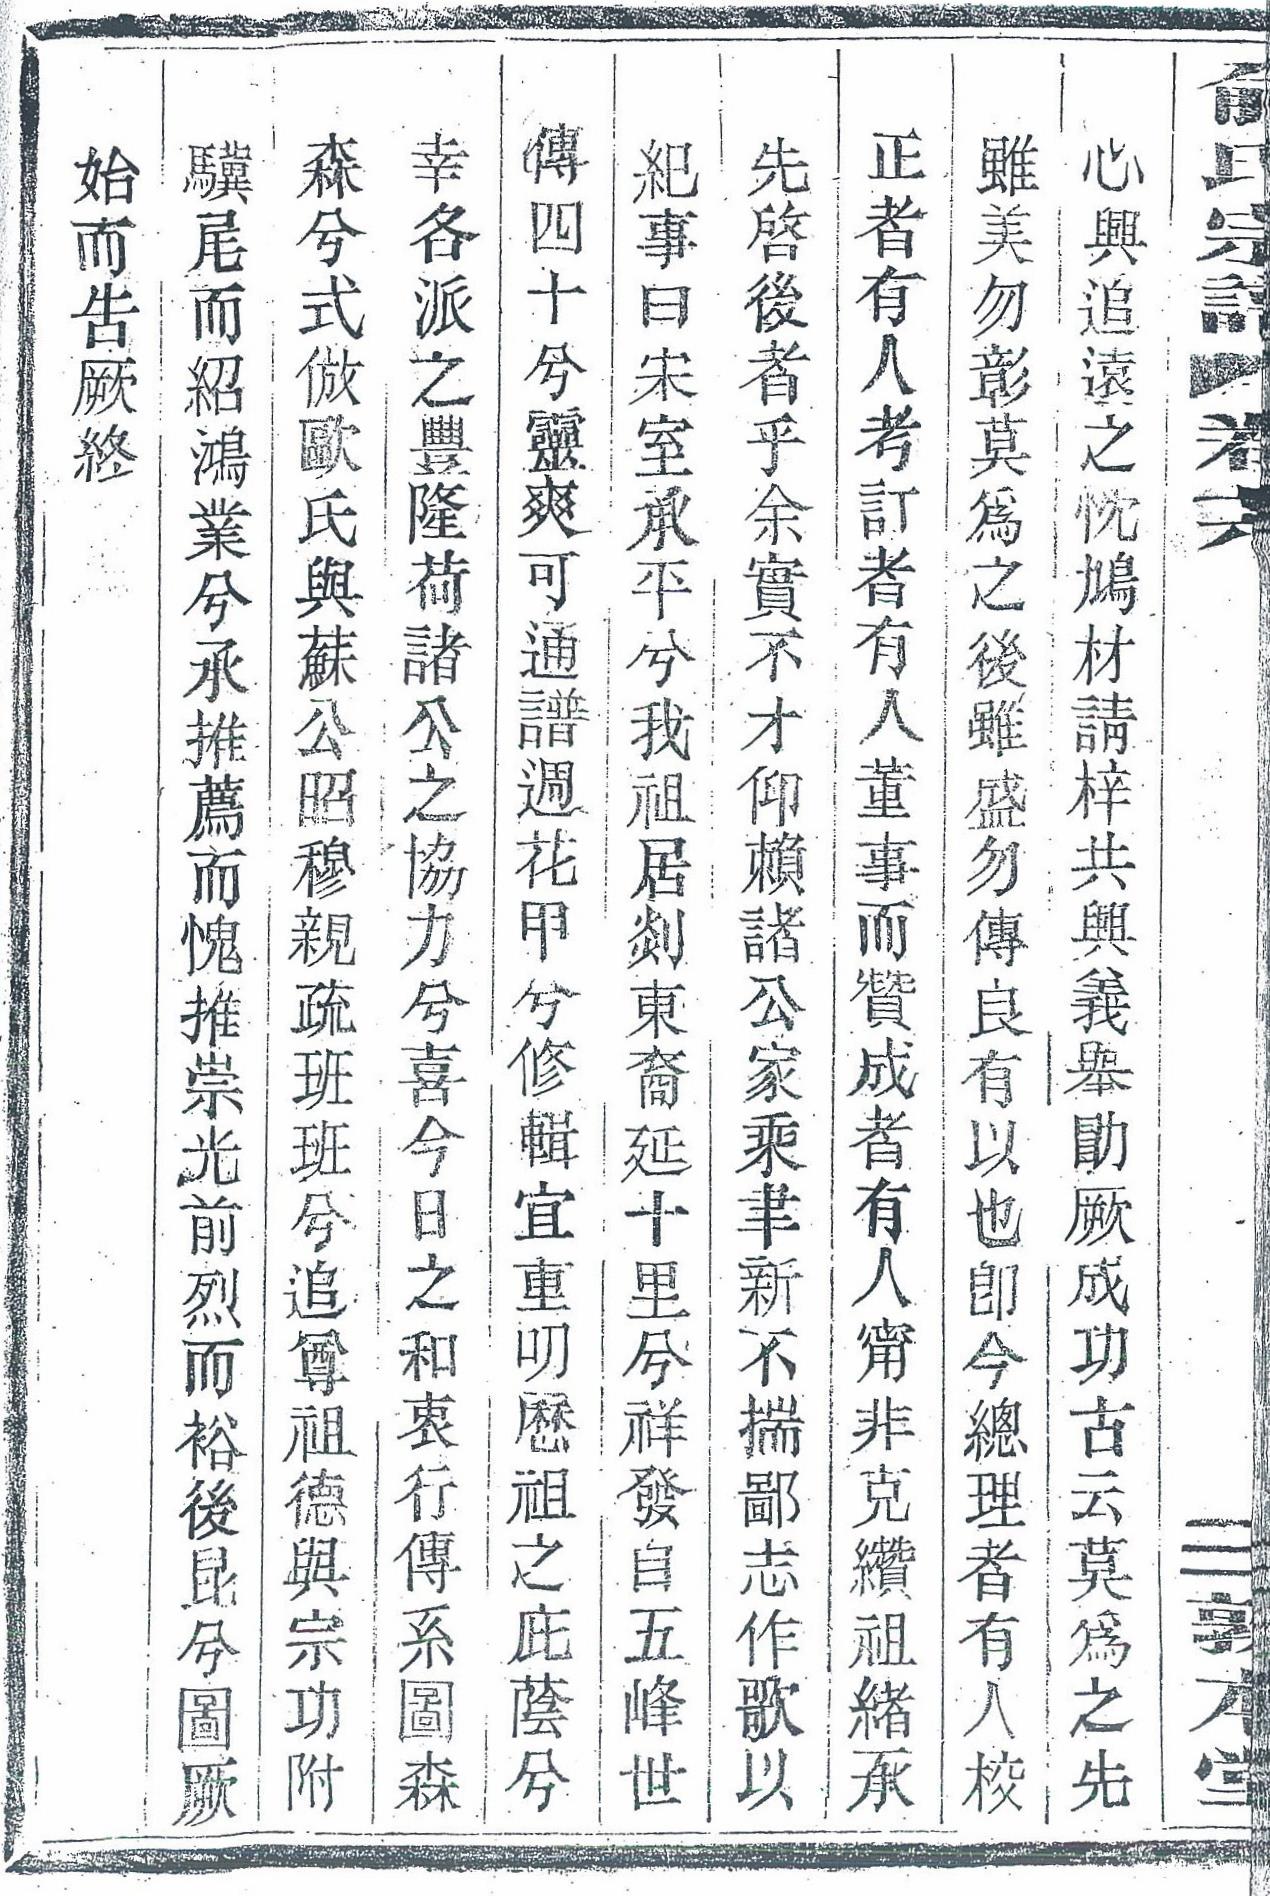 俞氏宗譜 卷六 三 敦本堂
心興追遠之忱鳩材請梓共興義舉勖厥成功古云莫爲之先
雖美勿彰莫爲之後雖盛勿傳良有以也卽今總理者有人校
正者有人考訂者有人董事而贊成者有人甯非克纘祖緒承
先啓後者乎余實不才仰賴諸公家乘聿新不揣鄙志作歌以
紀事曰宋室承平兮我祖居剡東裔延十里兮祥發自五峰世
傳四十兮靈爽可通譜週花甲兮修輯宜重叨歷祖之庇蔭兮
幸各派之豐隆荷諸公之協力兮喜今日之和衷行傳系圖森
森兮式倣歐氏與蘇公昭穆親疏班班兮追尊祖德與宗功附
驥尾而紹鴻業兮承推薦而愧推崇光前烈而裕後昆兮圖厥
始而告厥終